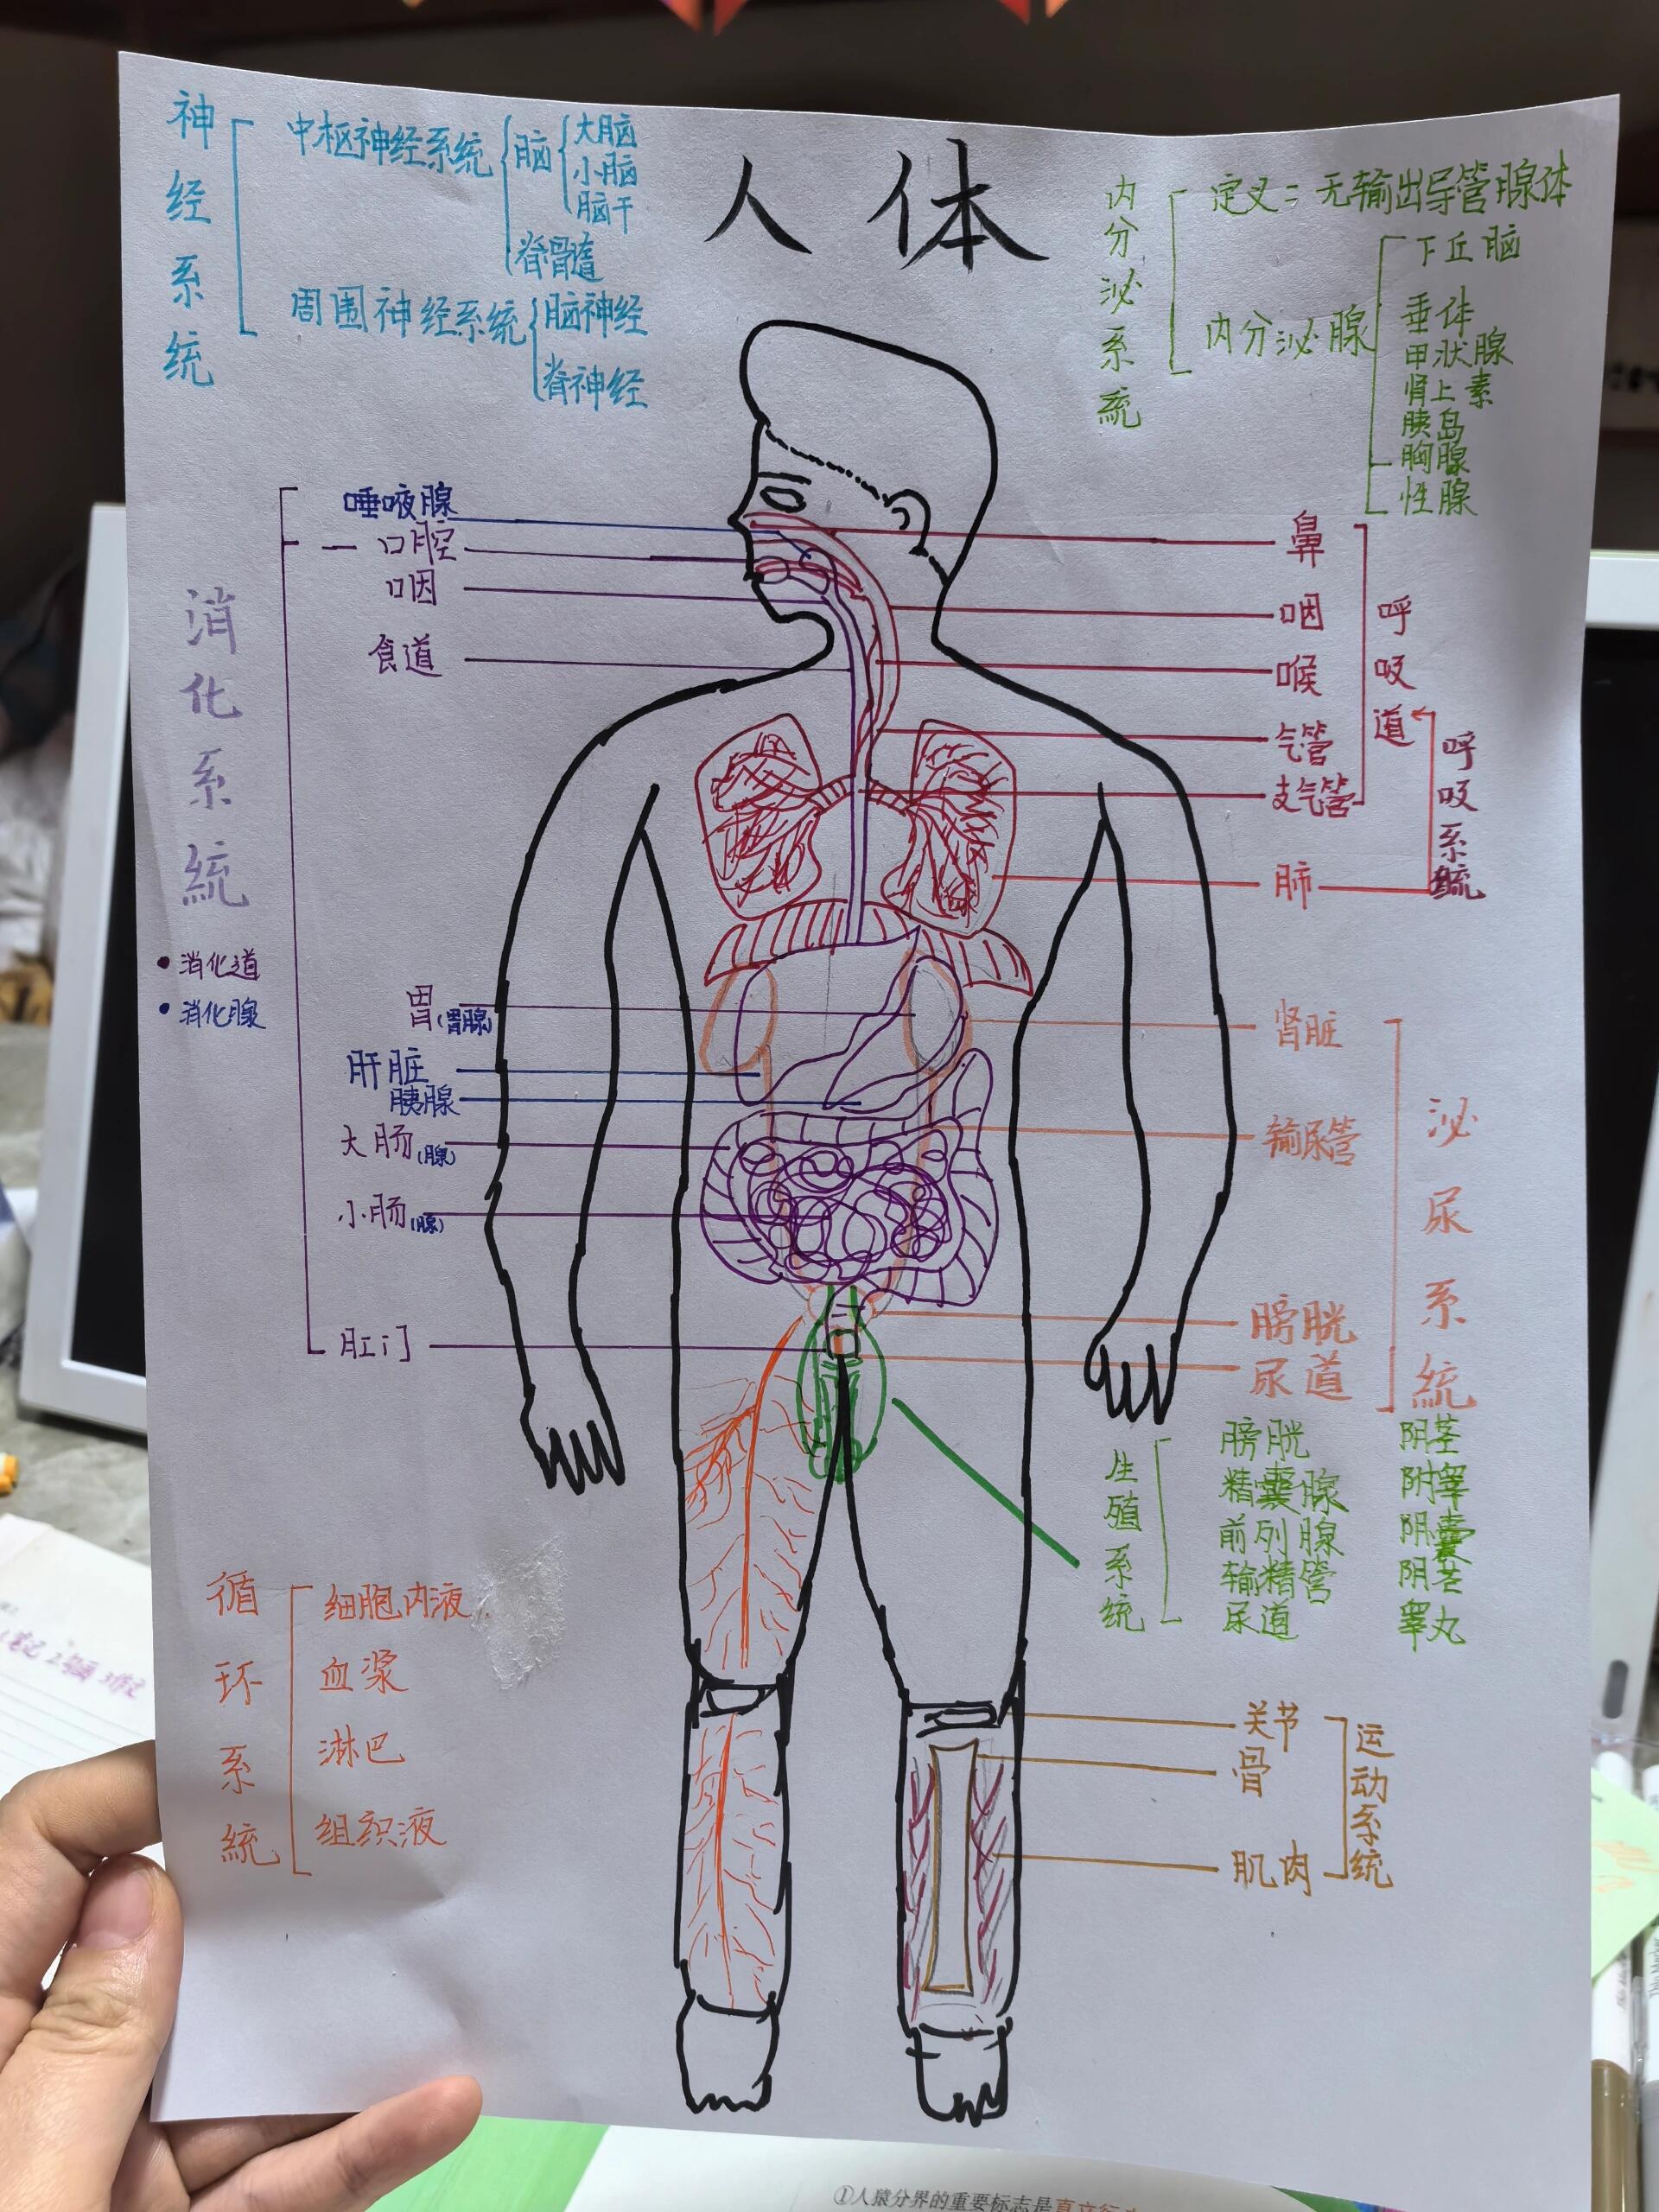 人体
神经系统
中枢神经系统
脑
大脑
小脑
脑干
脊髓
周围神经系统
脑神经
脊神经
内分泌系统
定义：无输出导管腺体
内分泌腺
下丘脑
垂体
甲状腺
肾上素
胰岛
胸腺
性腺
消化系統
•消化道
•消化腺
唾液腺
口腔
咽
食道
胃(胃腺)
肝脏
胰腺
大肠(腺)
小肠(腺)
肛门
鼻
咽
喉
气管
支气管
肺
呼吸道
呼吸系统
肾脏
输尿管
膀胱
尿道
泌尿系統
生殖系统
膀胱
精囊腺
前列腺
输精管
尿道
阴茎
附睾
阴囊
睾丸
循环系統
细胞内液
血浆
淋巴
组织液
关节
骨
肌肉
运动系统
①人猿分界的重要标志是直立行